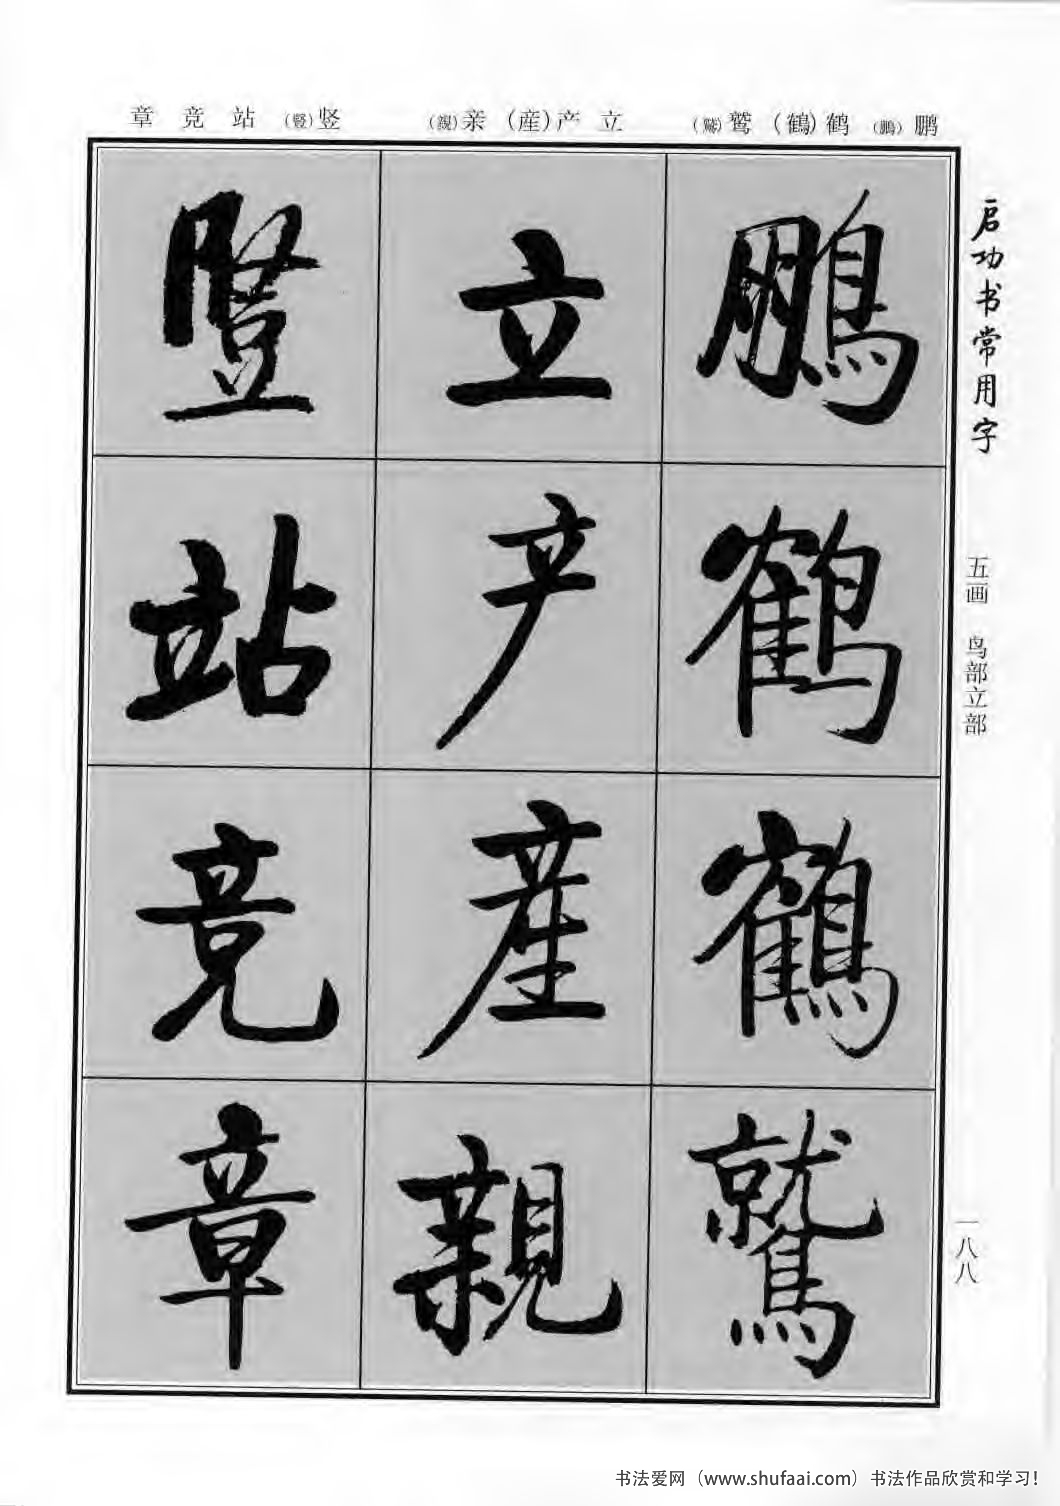 鹏（鵬） 鹤（鶴） 鹫（鷲）
立 产（産） 亲（親）
竖（豎） 站 竞 章
启功书常用字
五画 鸟部立部
一八八
鵬鹤鶴鷲
立产産親
豎站竞章
书法爱网（www.shufaai.com）书法作品欣赏和学习！